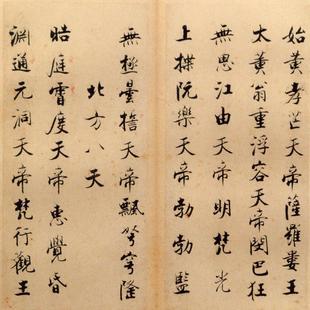 始黄孝芒天帝薩羅婁王
太黄翁重浮容天帝閔巴狂
無思江由天帝明梵光
上揲阮樂天帝勃勃監
無極曇誓天帝飄弩穹隆
北方八天
皓庭霄度天帝惠覺昏
淵通元洞天帝梵行觀生